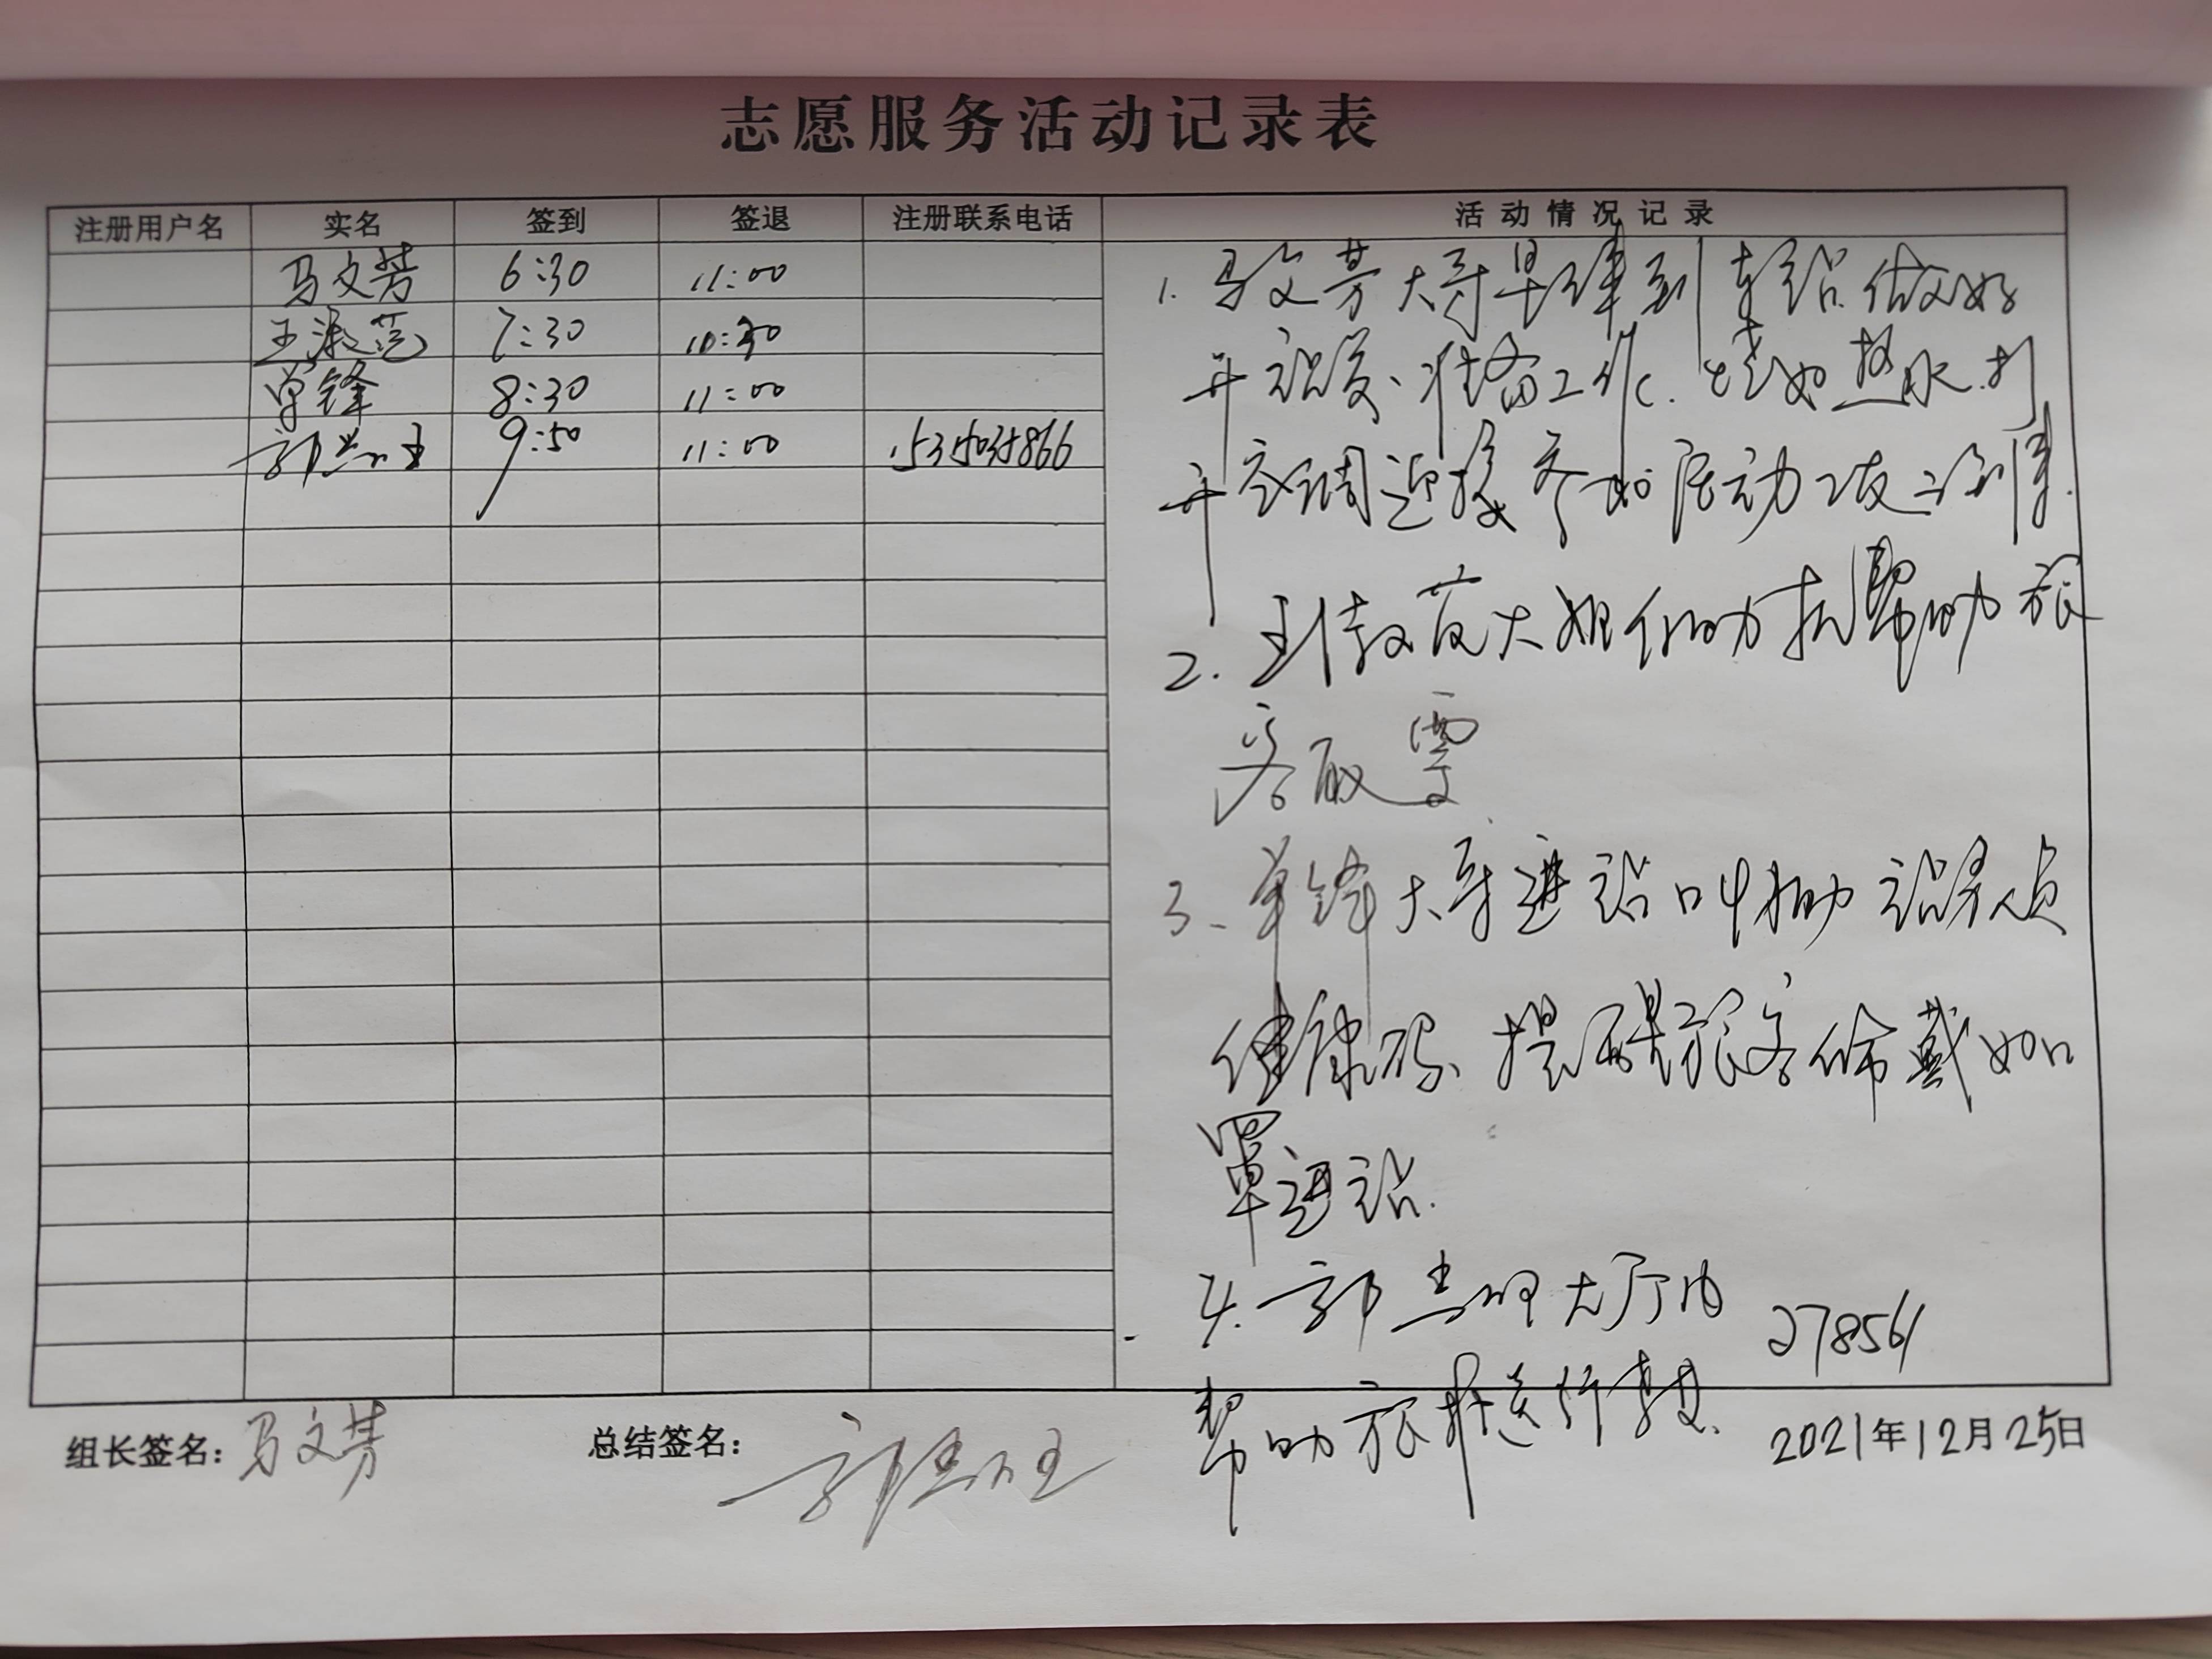 志愿服务活动记录表
注册用户名 实名 签到 签退 注册联系电话 活动情况记录
马文芳 6:30 11:00
王淑范 7:30 10:30
单锋 8:30 11:00
郭 9:50 11:00
1. 马文芳大哥早 到车站做好
开 准备工作.烧好热水.打
开空调迎接参加活动
2. 王 范大姐 助 帮助旅
客取票
3、单锋大哥进站口协助 站务人员
健康码、提醒旅客佩戴好口
罩进站.
4. 郭 大厅内
帮助旅 行
278561
组长签名: 马文芳 总结签名: 郭 2021年12月25日